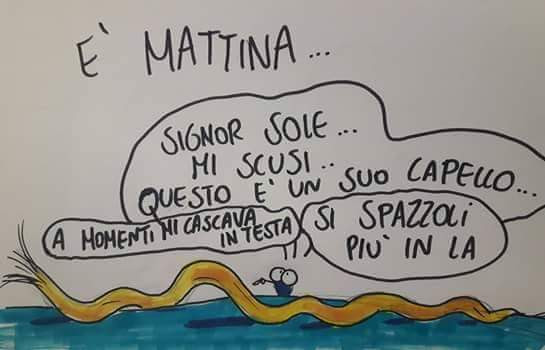 E' MATTINA...
SIGNOR SOLE...
MI SCUSI..
QUESTO E' UN SUO CAPELLO...
A MOMENTI MI CASCAVA
IN TESTA
SI SPAZZOLI
PIU' IN LA